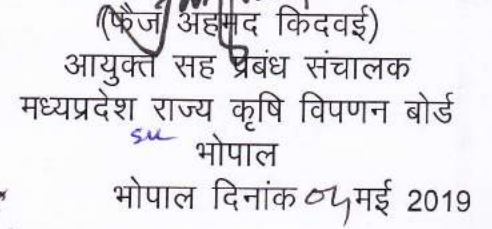 (फैज अहमद किदवई)
आयुक्त सह प्रबंध संचालक
मध्यप्रदेश राज्य कृषि विपणन बोर्ड
भोपाल
भोपाल दिनांक मई 2019